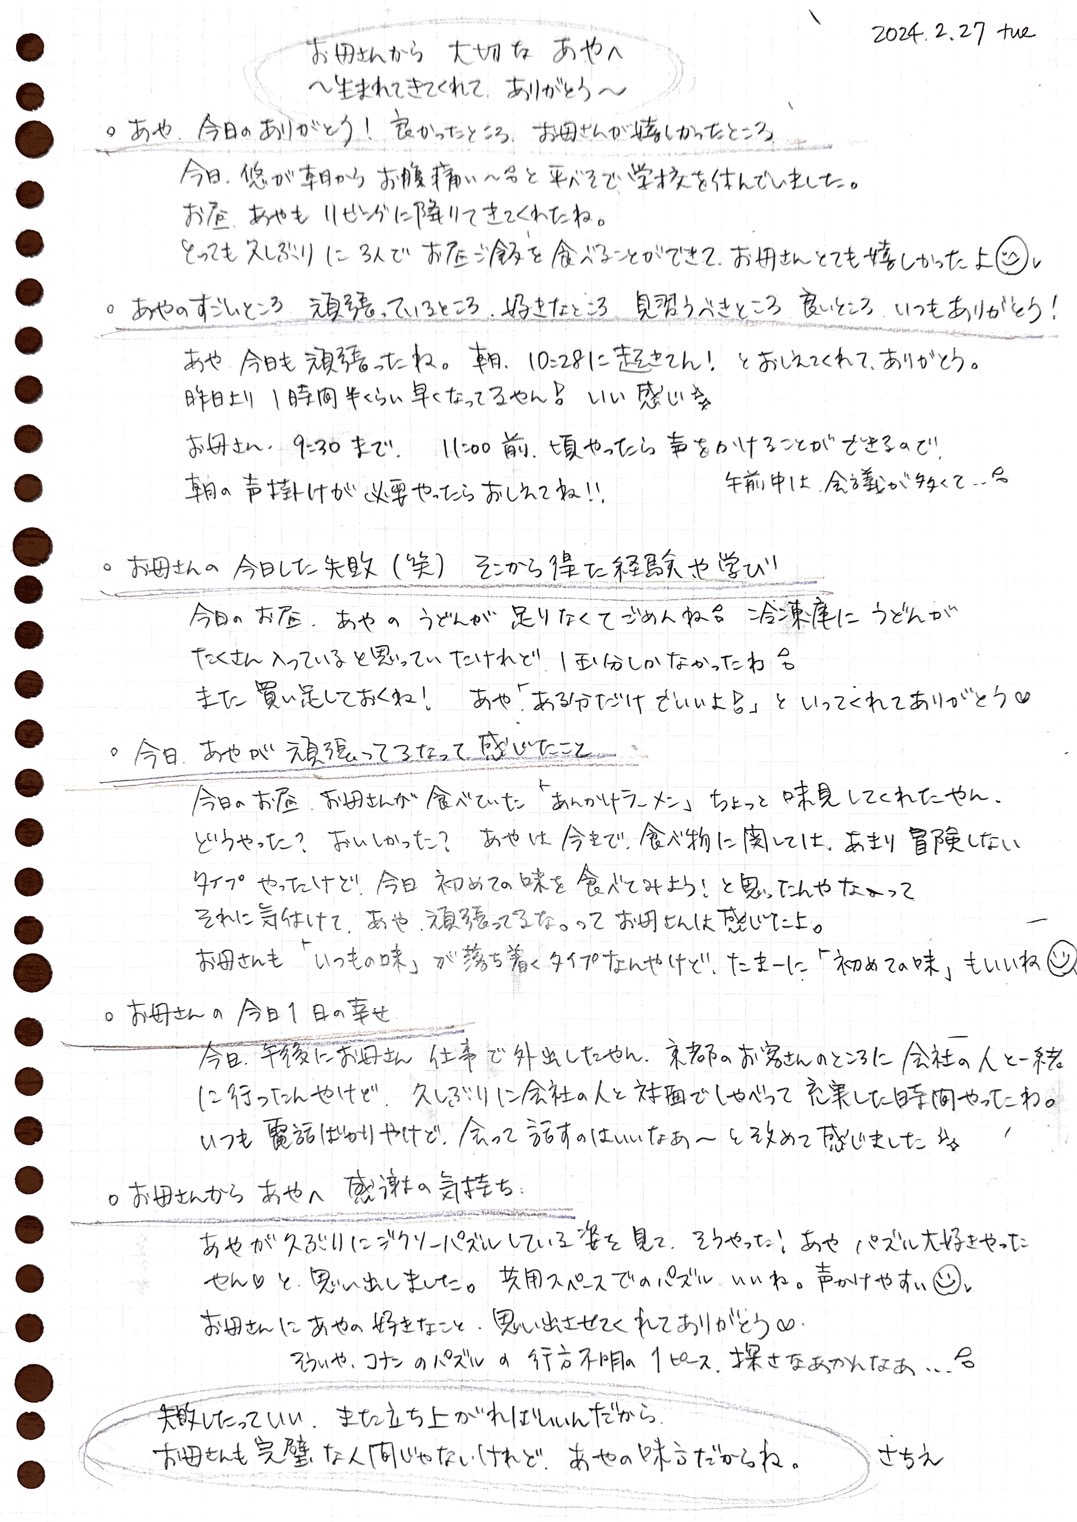 2024.2.27 tue
お母さんから 大切な あやへ
〜生まれてきてくれて、ありがとう〜
○ あや、今日のありがとう! 良かったところ、お母さんが嬉しかったところ
今日、悠が朝から お腹痛い〜 と 平べそで 学校を休んでいました。
お昼、あやも リビングに降りてきてくれたね。
とっても久しぶりに 3人で お昼ご飯を 食べることができて、お母さんとても嬉しかったよ
○ あやのすごいところ 頑張っているところ、好きなところ 見習うべきところ 良いところ いつもありがとう!
あや 今日も 頑張ったね。 朝、10:28に 起きてん! とおしえてくれて、ありがとう。
昨日より 1時間半くらい 早くなってるやん いい 感じ
お母さん、9:30まで、 11:00前、頃やったら 声をかけることができるので、
朝の声掛けが 必要やったら おしえてね!!
午前中は、会議が多くて…
○ お母さんの 今日した失敗(笑) そこから得た経験や学び
今日のお昼、あやの うどんが 足りなくて ごめんね 冷凍庫に うどんが
たくさん入っていると思っていたけれど、1玉分しかなかったね
また 買い足しておくね! あや「ある分だけでいいよ」と いってくれてありがとう♡
○ 今日、あやが 頑張ってるなって 感じたこと
今日のお昼、お母さんが 食べていた「あんかけラーメン」ちょっと 味見してくれたやん、
どうやった? おいしかった? あやは 今まで、食べ物に関しては、あまり 冒険しない
タイプ やったけど、今日 初めての味を 食べてみよう! と思ったんやなぁって
それに気付けて、あや、頑張ってるな。って お母さんは 感じたよ。
お母さんも「いつもの味」が 落ち着くタイプなんやけど、たまーに「初めての味」もいいね
○ お母さんの 今日1日の幸せ
今日、午後にお母さん 仕事で外出したやん、京都のお客さんのところに 会社の人と一緒
に行ったんやけど、久しぶりに会社の人と 対面でしゃべって 充実した時間やったわ。
いつも 電話ばかりやけど、会って 話すのはいいなぁ〜 と改めて 感じました
○ お母さんから あやへ 感謝の気持ち
あやが久ぶりにジグソーパズルしている姿を見て、そうやった! あや パズル大好きやった
やん♡ と 思い出しました。 共用スペースでのパズル いいね。声かけやすい
お母さんに あやの好きなこと、思い出させてくれてありがとう♡
そういや、コナンのパズルの 行方不明の 1ピース、探さなあかんなぁ…
失敗したっていい、また立ち上がればいいんだから
お母さんも完璧な人間じゃないけれど、あやの味方だからね。
さちえ